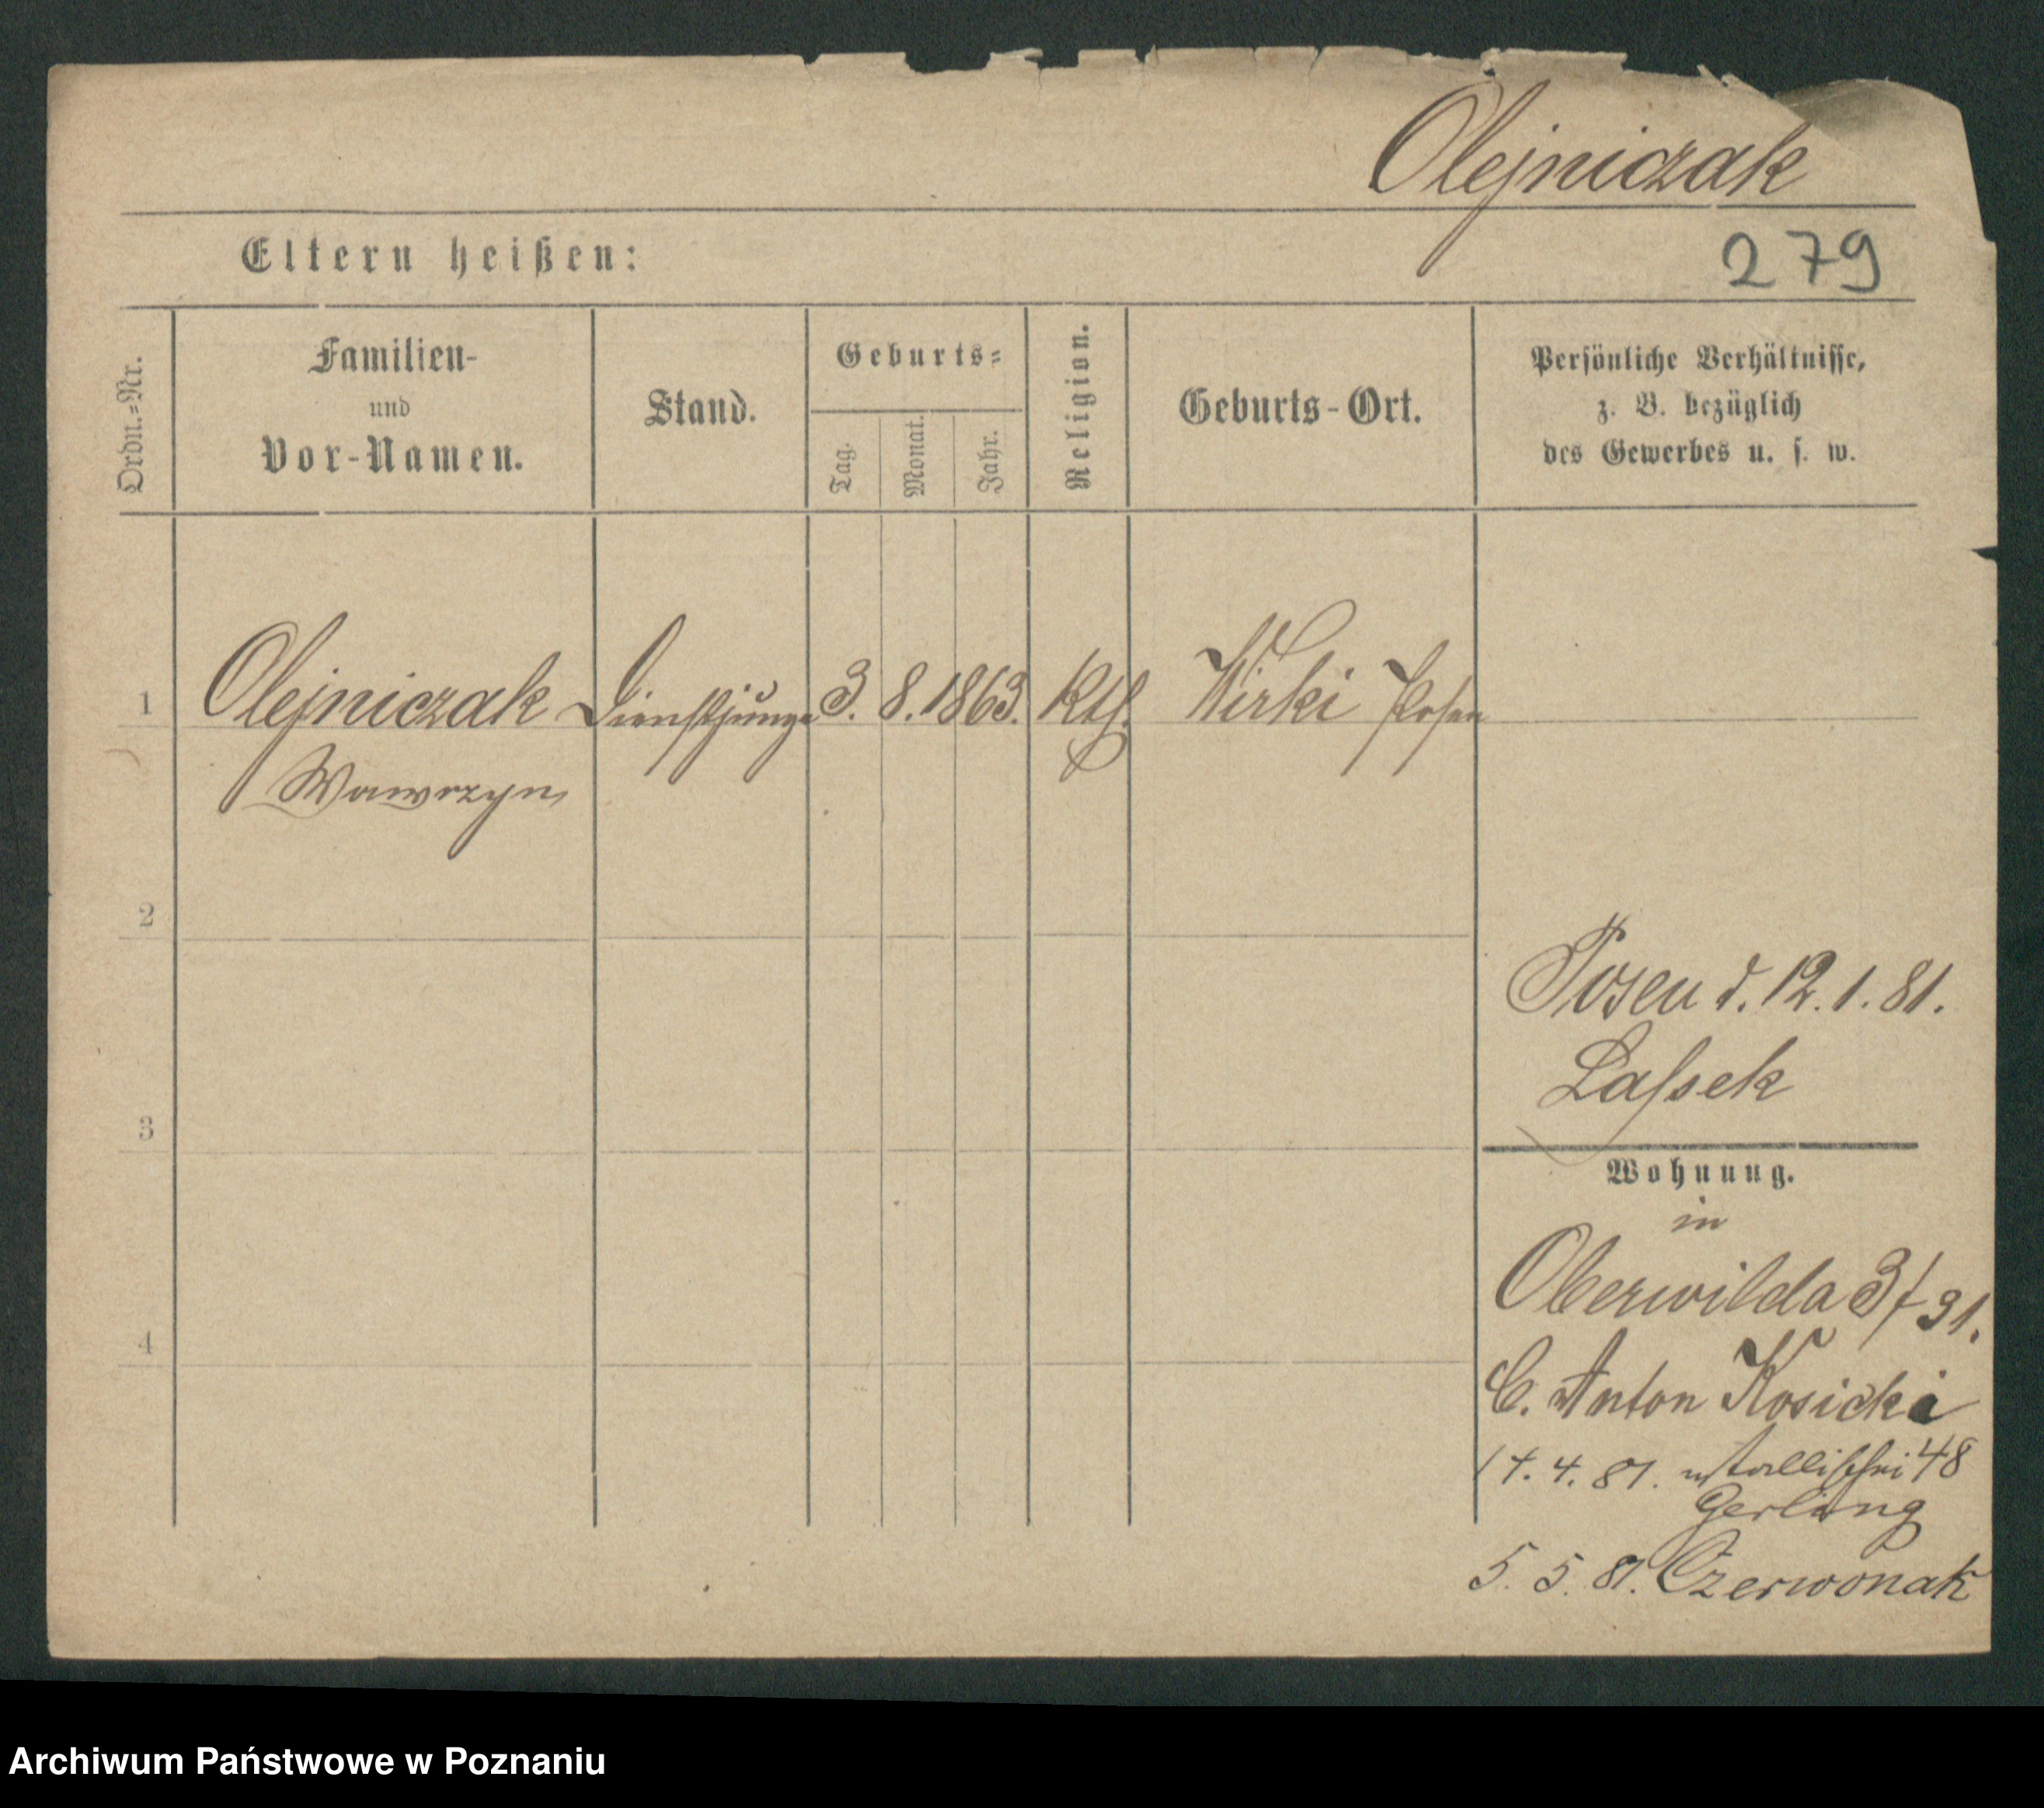 Olejniczak
279
Eltern heißen:
Ordn.-Nr.
Familien-
und
Vor-Namen.
Stand.
Geburts-
Tag.
Monat.
Jahr.
Religion.
Geburts-Ort.
Persönliche Verhältnisse,
z. B. bezüglich
des Gewerbes u. s. w.
1 Olejniczak Dienstjunge 3. 8. 1863. Kth. Wirki Posen
Wawrzyn
2
Posen d. 12. 1. 81.
Lassek
3
Wohnung.
in
Oberwilda 3/31.
4
b. Anton Kosicki
17. 4. 81. 48
Gerling
5. 5. 81. Czerwonak
Archiwum Państwowe w Poznaniu